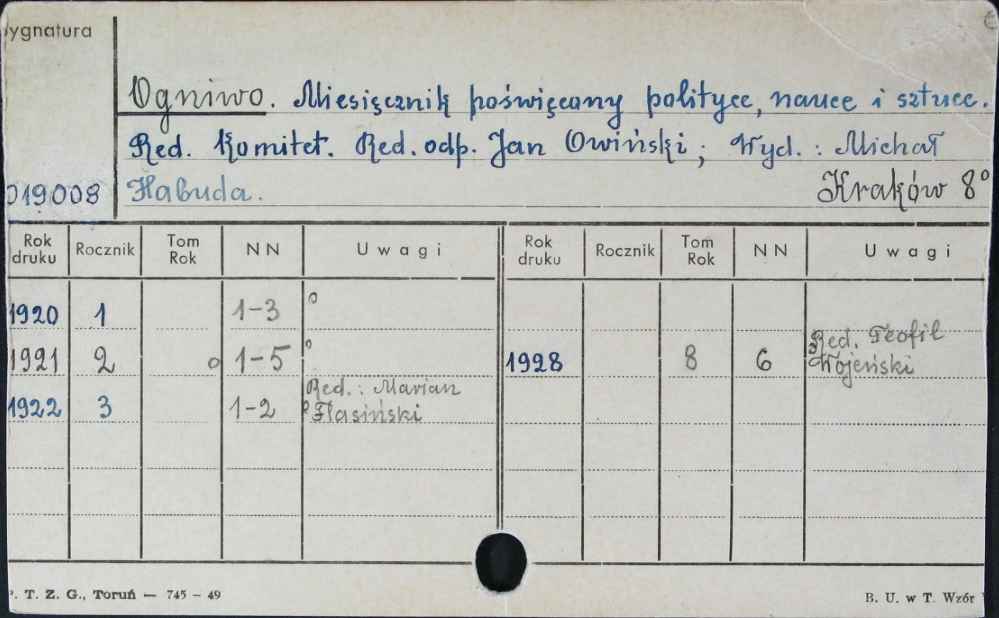 ygnatura
Ogniwo. Miesięcznik poświęcony polityce, nauce i sztuce.
Red. Komitet. Red. odp. Jan Owiński; Wyd.: Michał
019008 Habuda. Kraków 8°
Rok druku Rocznik Tom Rok NN Uwagi Rok druku Rocznik Tom Rok NN Uwagi
1920 1 1-3 o
1921 2 o 1-5 o 1928 8 6 Red. Teofil Wojeński
1922 3 1-2 Red.: Marian Flasiński
. T. Z. G., Toruń — 745 – 49 B. U. w T. Wzór